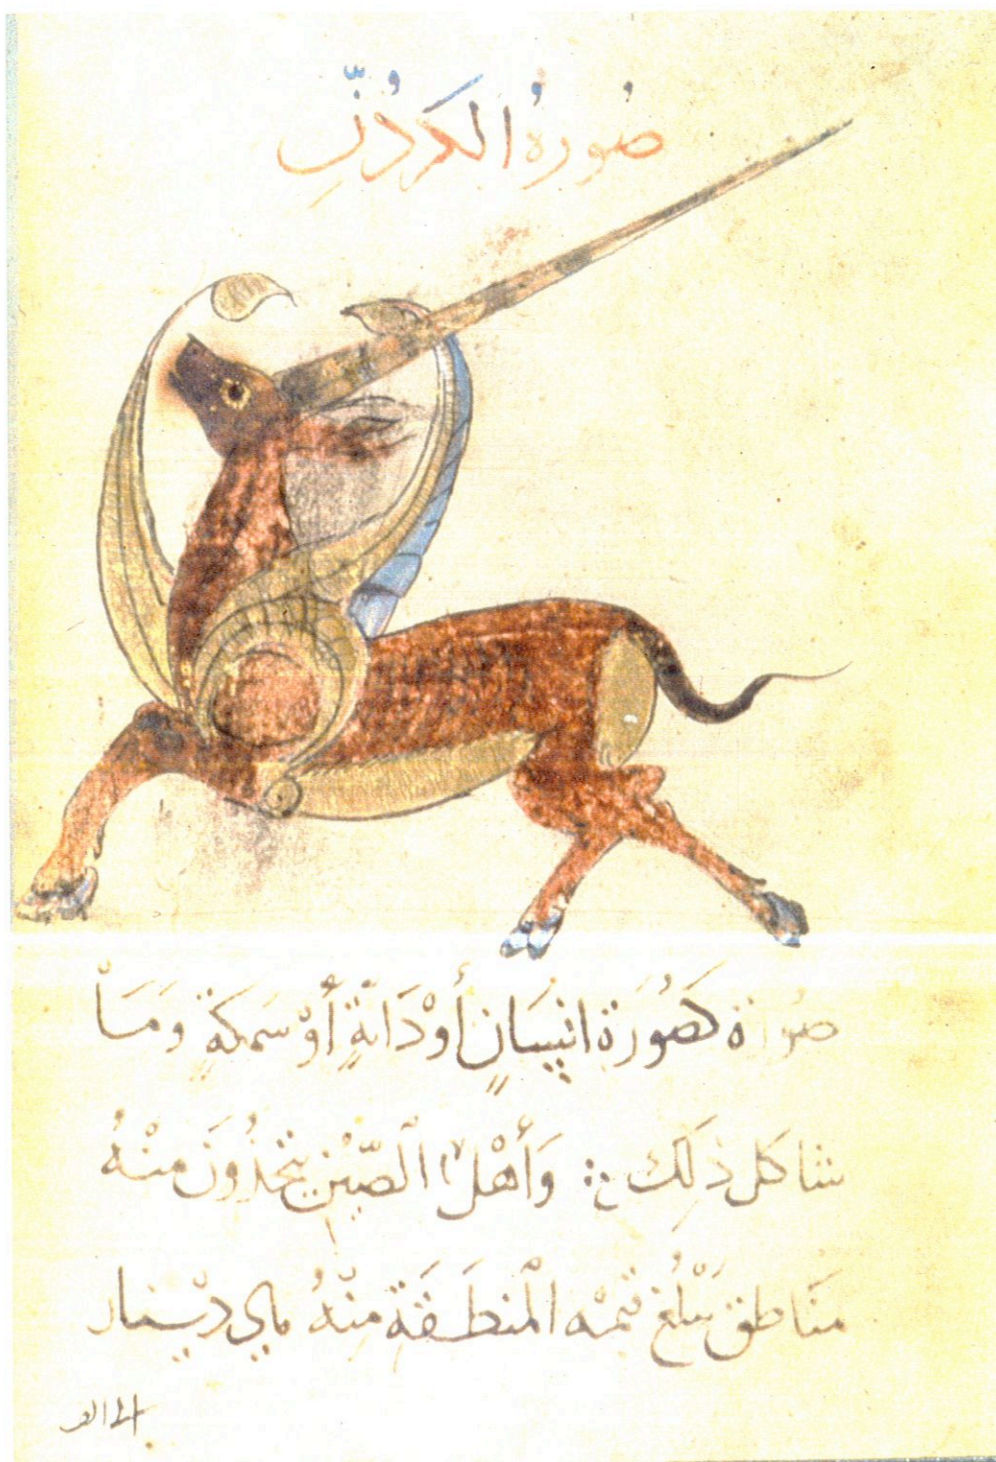 صُورهُ الكَردُنِّ
صُورة كَصُورَة انسَانٍ أَوْ دَابَّةٍ أَوْ سَمَكَةٍ وَمَا
شاكل ذلِكَ وَأَهْلُ الصّيْن يتخذُونَ منْهُ
مَنَاطق يَبْلُغ قيمَه الْمنطَقَة مِنْهُ مايى ديْنار
الى الف